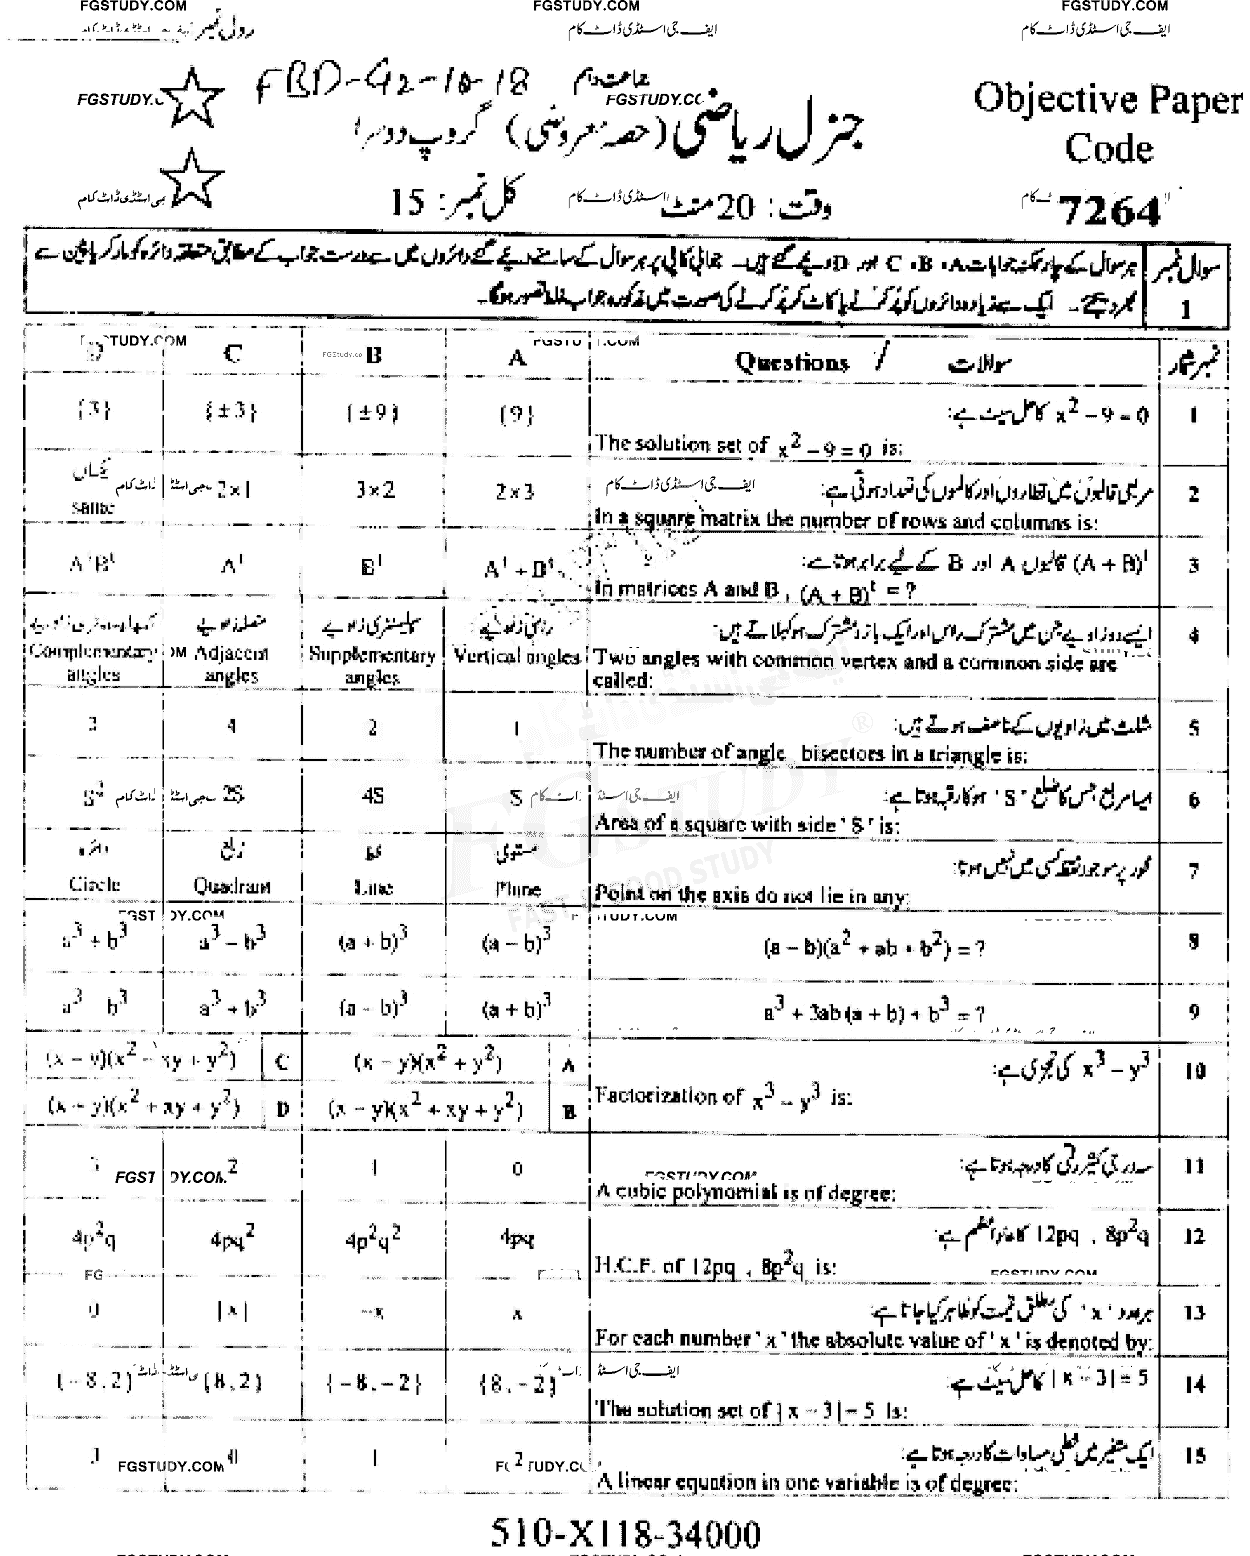 FGSTUDY.COM FGSTUDY.COM FGSTUDY.COM
رول نمبر ایف جی اسٹڈی ڈاٹ کام ایف جی اسٹڈی ڈاٹ کام
FBD-G2-10-18 جماعت دہم
جنرل ریاضی (حصہ معروضی) گروپ دوسرا
Objective Paper
Code
7264
وقت: 20 منٹ کل نمبر: 15
سوال نمبر 1
ہر سوال کے چار ممکنہ جوابات A، B، C اور D دیئے گئے ہیں۔ جوابی کاپی پر ہر سوال کے سامنے دیئے گئے دائروں میں سے درست جواب کے مطابق متعلقہ دائرہ کو مارکر یا پین سے
بھر دیجئے۔ ایک سے زیادہ دائروں کو پُر کرنے یا کاٹ کر پُر کرنے کی صورت میں مذکورہ جواب غلط تصور ہوگا۔
D C B A Questions / سوالات نمبر شمار
{3} {±3} {±9} {9} x² − 9 = 0 کا حل سیٹ ہے: 1
The solution set of x² − 9 = 0 is:
یکساں 2×1 3×2 2×3 مربعی قالبوں میں قطاروں اور کالموں کی تعداد ہوتی ہے: 2
same In a square matrix the number of rows and columns is:
AᵗBᵗ Aᵗ Bᵗ Aᵗ + Bᵗ (A + B)ᵗ قالبوں A اور B کے لیے برابر ہوتا ہے: 3
In matrices A and B, (A + B)ᵗ = ?
کمپلیمنٹری زاویے متصلہ زاویے سپلیمنٹری زاویے راسی زاویے ایسے دو زاویے جن میں مشترک راس اور ایک بازو مشترک ہو کہلاتے ہیں: 4
Complementary angles Adjacent angles Supplementary angles Vertical angles Two angles with common vertex and a common side are
called:
3 4 2 1 مثلث میں زاویوں کے ناصف ہوتے ہیں: 5
The number of angle bisectors in a triangle is:
S² 2S 4S S ایسا مربع جس کا ضلع 'S' ہو کا رقبہ ہوتا ہے: 6
Area of a square with side 'S' is:
دائرہ ربع خط مستوی محور پر موجود نقطہ کسی میں نہیں ہوتا: 7
Circle Quadrant Line Plane Point on the axis do not lie in any:
a³ + b³ a³ − b³ (a + b)³ (a − b)³ (a − b)(a² + ab + b²) = ? 8
a³ b³ a³ + b³ (a − b)³ (a + b)³ a³ + 3ab(a + b) + b³ = ? 9
(x − y)(x² − xy + y²) C (x − y)(x² + y²) A x³ − y³ کی تجزی ہے: 10
(x − y)(x² + xy + y²) D (x − y)(x² + xy + y²) B Factorization of x³ − y³ is:
2 1 0 سہ درجی کثیر رقمی کا درجہ ہوتا ہے: 11
A cubic polynomial is of degree:
4p²q 4pq² 4p²q² 4pq 12pq , 8p²q کا عاد اعظم ہے: 12
H.C.F. of 12pq , 8p²q is:
0 |x| −x x ہر عدد 'x' کی مطلق قیمت کو ظاہر کیا جاتا ہے: 13
For each number 'x' the absolute value of 'x' is denoted by:
{−8,2} {8,2} {−8,−2} {8,−2} |x − 3| = 5 کا حل سیٹ ہے: 14
The solution set of |x − 3| = 5 is:
3 0 1 2 ایک متغیر میں خطی مساوات کا درجہ ہوتا ہے: 15
A linear equation in one variable is of degree:
FGSTUDY
FAST & GOOD STUDY
510-X118-34000